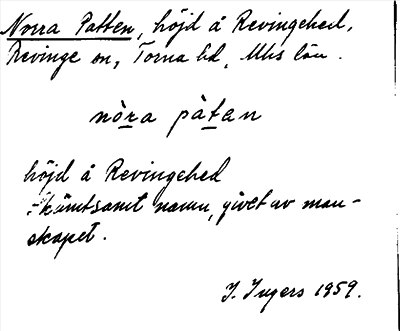 Norra Patten, höjd å Revingehed,
Revinge sn, Torna hd, Mhs län.
nòra pàten
höjd å Revingehed
- skämtsamt namn, givet av man-
skapet.
I. Ingers 1959.